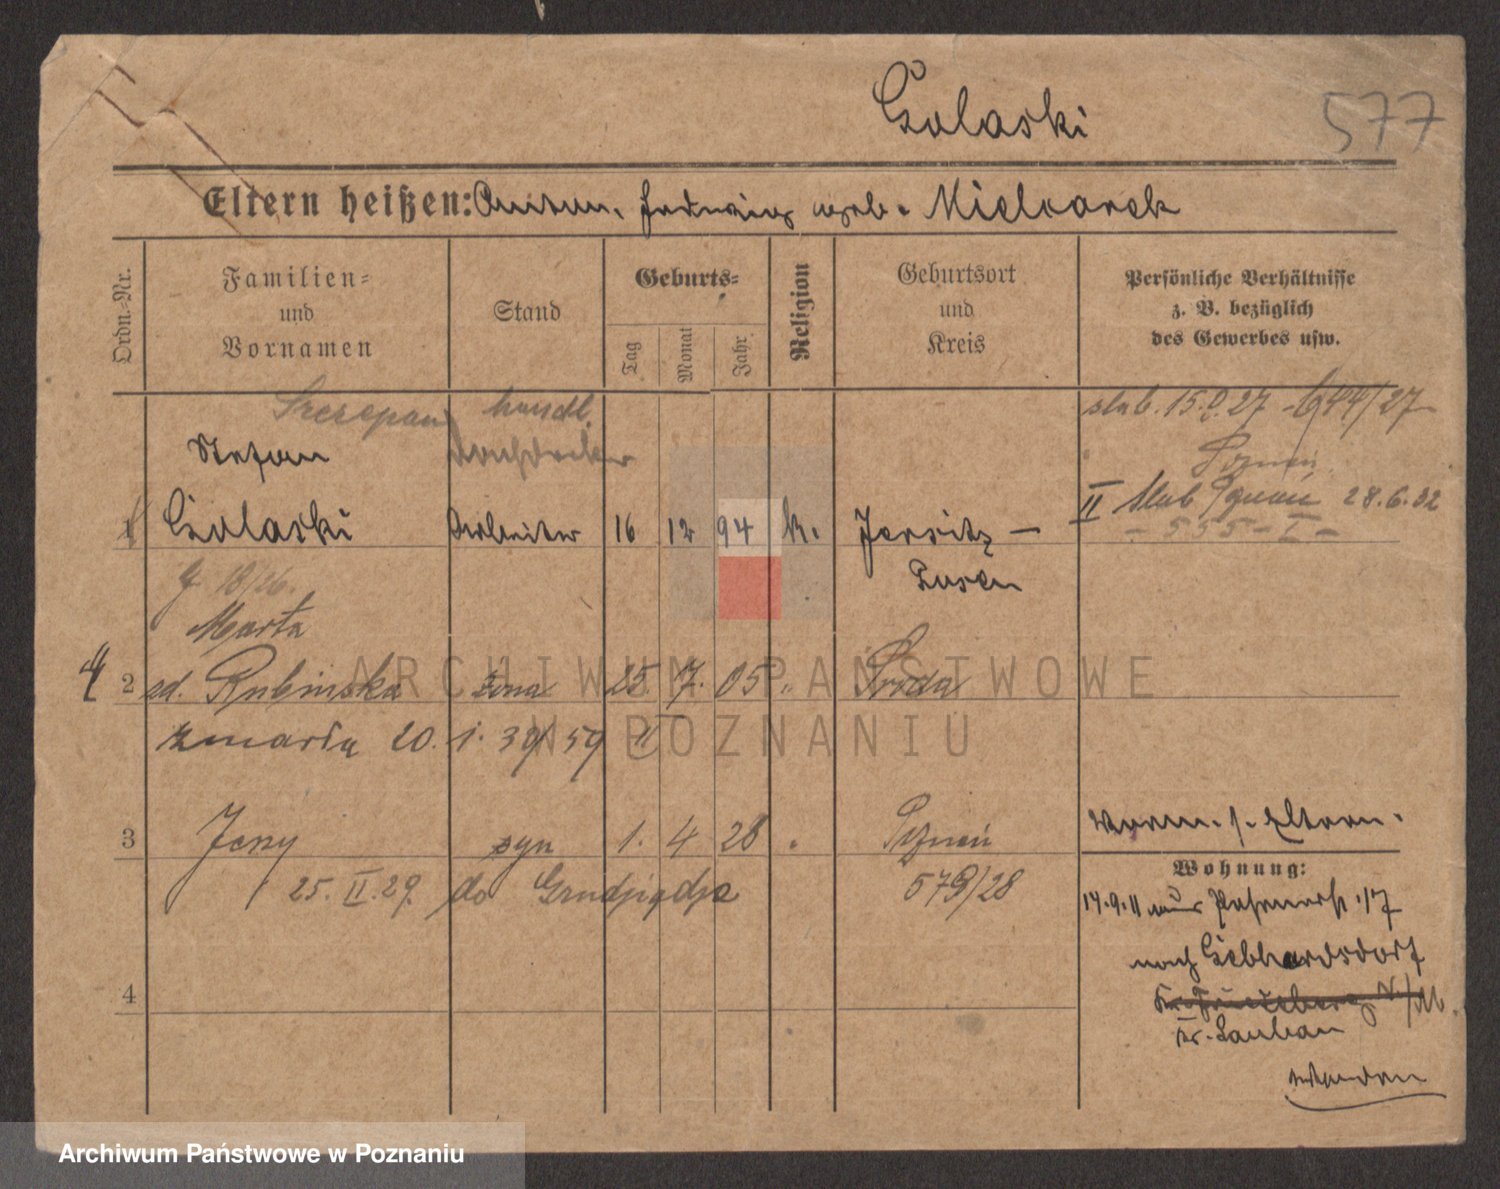 Golaski
577
Eltern heißen: Anton, Jadwiga geb. Mielcarek
Ordn.-Nr.
Familien-
und
Vornamen
Stand
Geburts-
Tag
Monat
Jahr
Religion
Geburtsort
und
Kreis
Persönliche Verhältnisse
z. B. bezüglich
des Gewerbes usw.
Szczepan handl.
ślub. 15. 27 - 644/27
Stefan
Poznań
1 Golaski Arbeiter 16 12 94 k. Jersitz -
II ślub Poznań 28.6.32
- 555 - I -
Posen
18/26.
Marta
4
2 zd. Rubinska żona 25. 7. 05 " Środa
zmarła 20. 1. 39 59 II
3 Jerzy syn 1. 4 28 " Poznań
579/28
25. II. 29. do Grudziądza
vorm. s. Eltern.
Wohnung:
17.9.11 aus 17
nach Gebhardsdorf
Kr. Lauban
4
ARCHIWUM PAŃSTWOWE
W POZNANIU
Archiwum Państwowe w Poznaniu